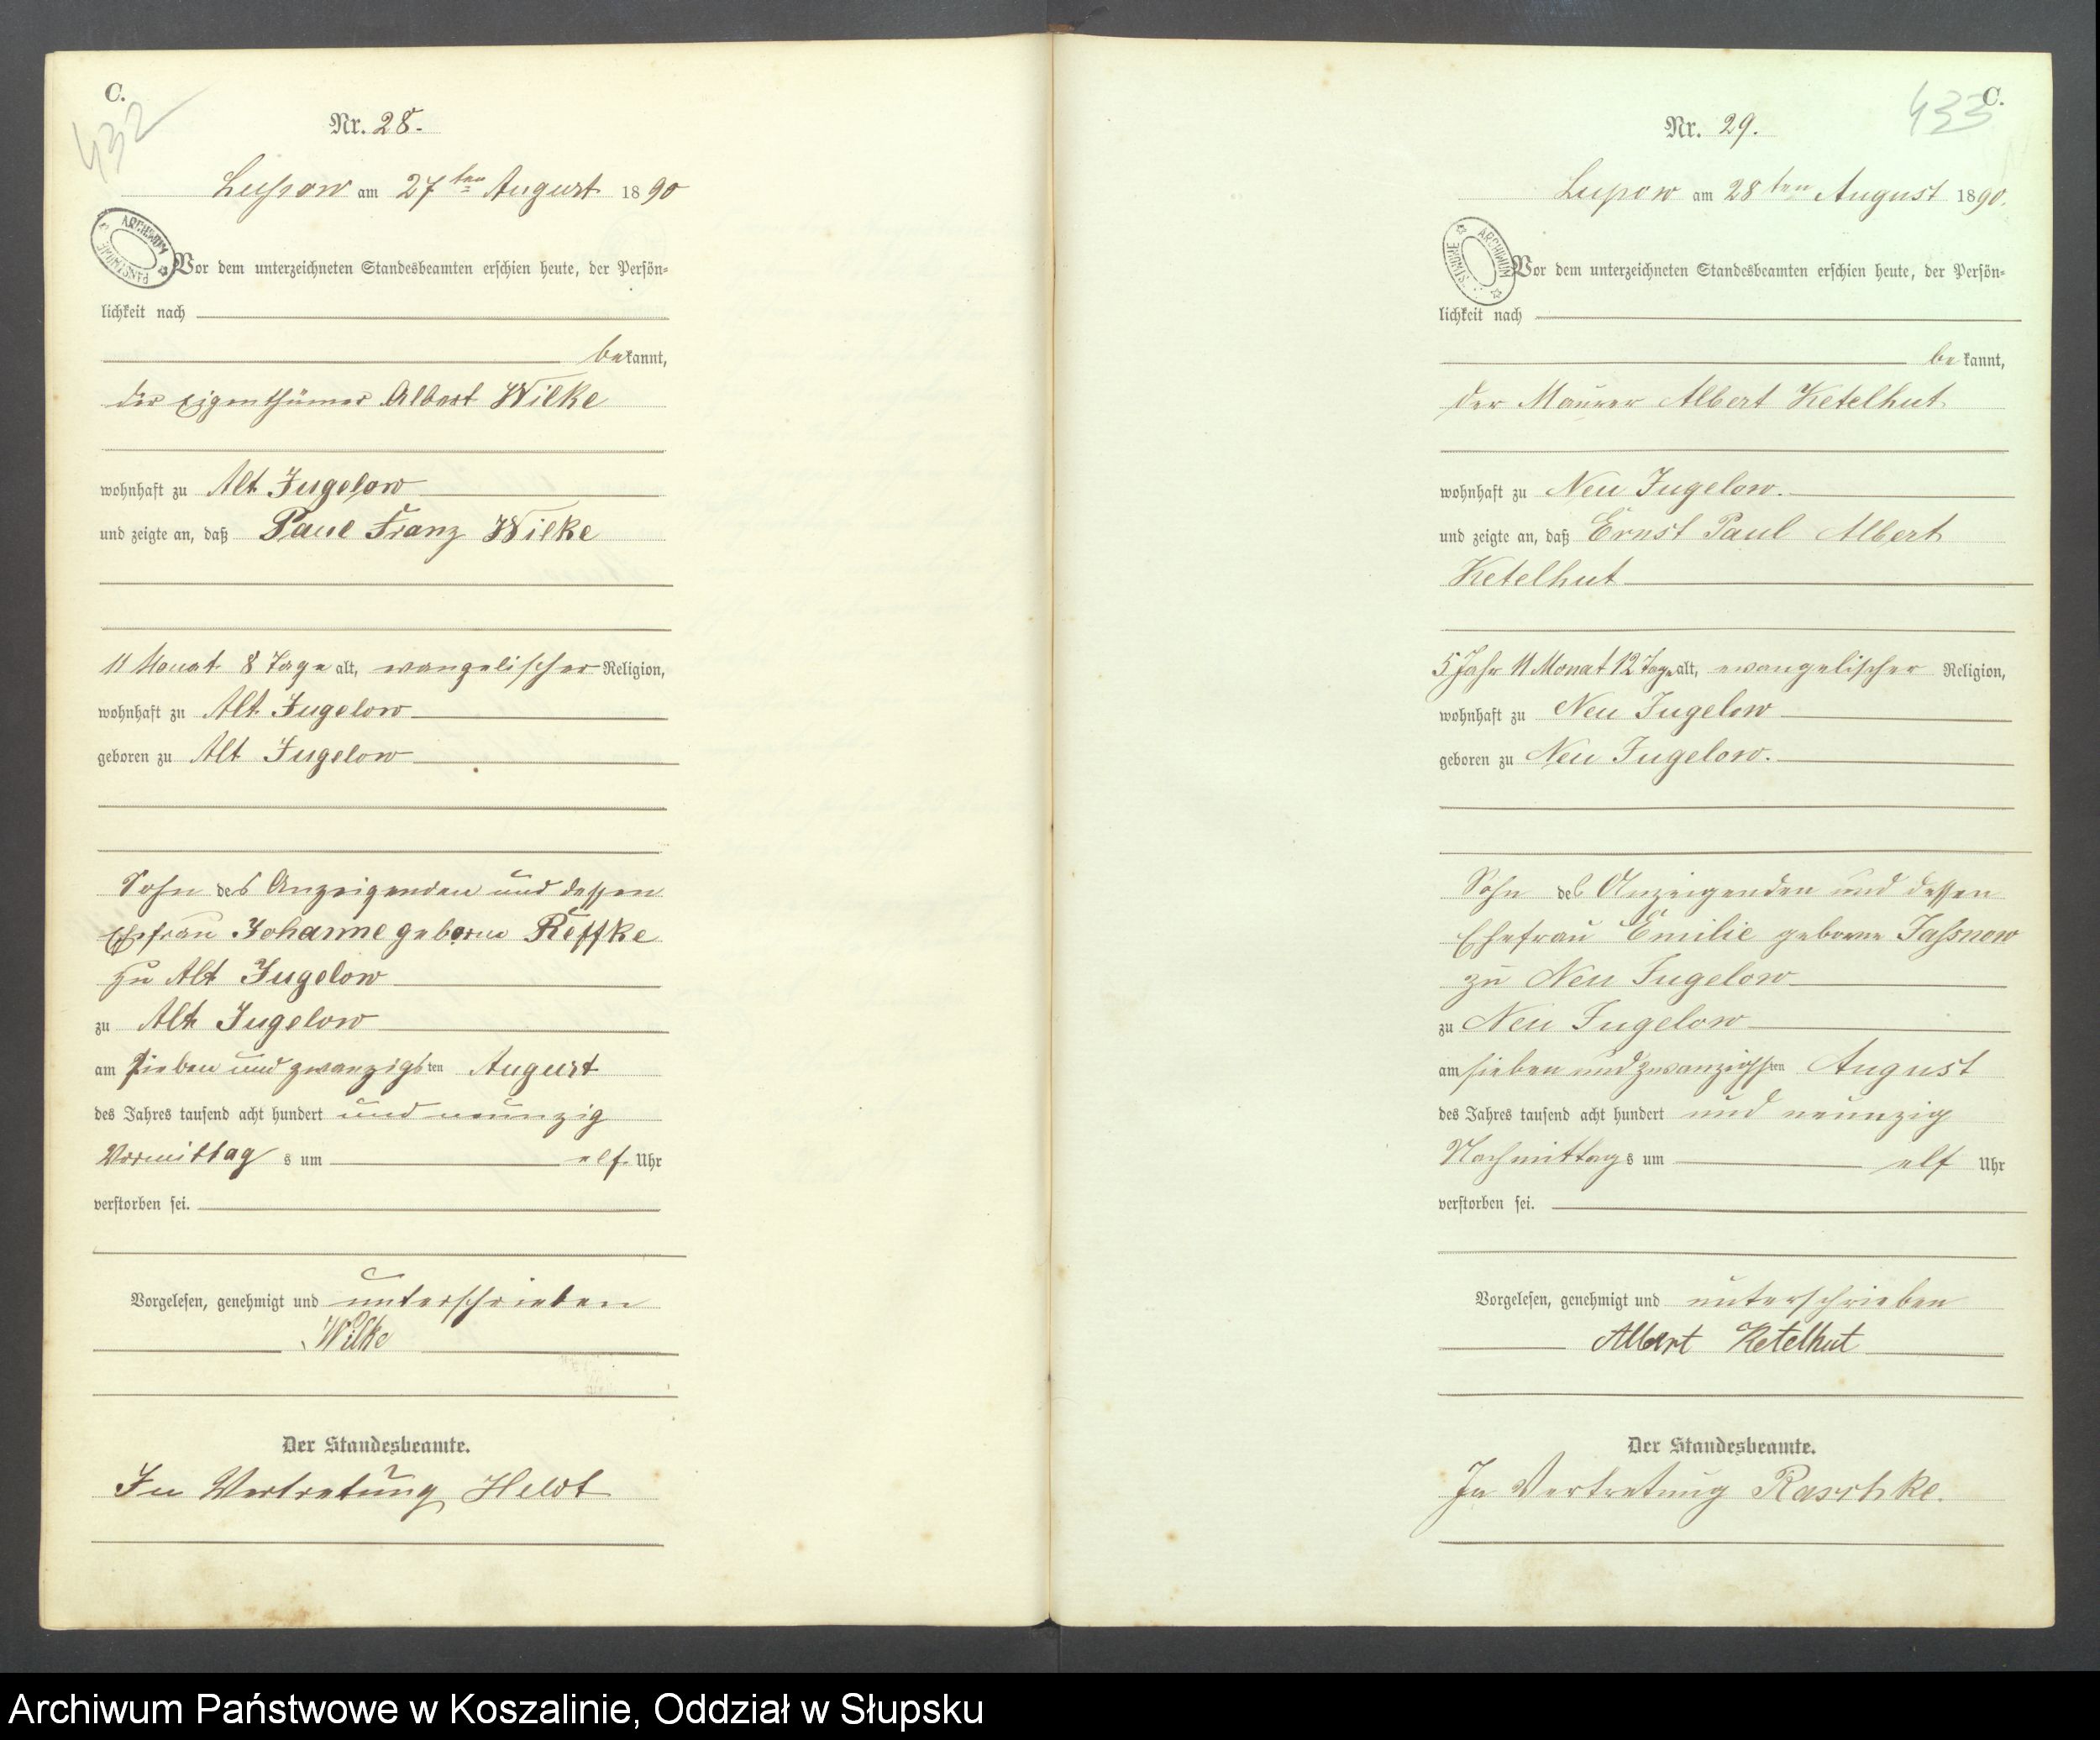 C.
432
Nr. 28.
Lupow am 27ten August 1890
ARCHIWUM PAŃSTWOWE
Vor dem unterzeichneten Standesbeamten erschien heute, der Persön-
lichkeit nach
bekannt,
der Eigenthümer Albert Wilke
wohnhaft zu Alt Jugelow
und zeigte an, daß Paul Franz Wilke
11 Monat 8 Tage alt, evangelischer Religion,
wohnhaft zu Alt Jugelow
geboren zu Alt Jugelow
Sohn des Anzeigenden und dessen
Ehefrau Johanne geborne Reffke
zu Alt Jugelow
zu Alt Jugelow
am sieben und zwanzigsten August
des Jahres tausend acht hundert und neunzig
Vormittags um elf Uhr
verstorben sei.
Vorgelesen, genehmigt und unterschrieben
Wilke
Der Standesbeamte.
In Vertretung Heldt
C.
433
Nr. 29.
Lupow am 28ten August 1890.
ARCHIWUM
Vor dem unterzeichneten Standesbeamten erschien heute, der Persön-
lichkeit nach
bekannt,
der Maurer Albert Ketelhut
wohnhaft zu Neu Jugelow.
und zeigte an, daß Ernst Paul Albert
Ketelhut
5 Jahr 11 Monat 12 Tage alt, evangelischer Religion,
wohnhaft zu Neu Jugelow
geboren zu Neu Jugelow.
Sohn des Anzeigenden und dessen
Ehefrau Emilie geborne Jassnow
zu Neu Jugelow
zu Neu Jugelow
am sieben und zwanzigsten August
des Jahres tausend acht hundert und neunzig
Nachmittags um elf Uhr
verstorben sei.
Vorgelesen, genehmigt und unterschrieben
Albert Ketelhut
Der Standesbeamte.
In Vertretung Raschke.
Archiwum Państwowe w Koszalinie, Oddział w Słupsku